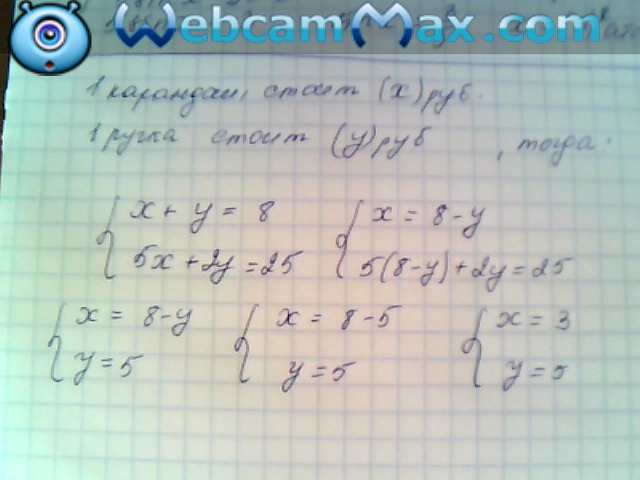 WebcamMax.com
1 карандаш стоит (x) руб.
1 ручка стоит (y) руб, тогда:
{ x + y = 8
5x + 2y = 25
{ x = 8 - y
5(8-y) + 2y = 25
{ x = 8 - y
y = 5
{ x = 8 - 5
y = 5
{ x = 3
y = 5